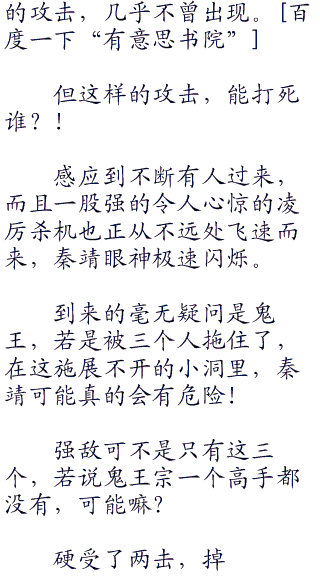 的攻击，几乎不曾出现。[百
度一下“有意思书院”]
但这样的攻击，能打死
谁？！
感应到不断有人过来，
而且一股强的令人心惊的凌
厉杀机也正从不远处飞速而
来，秦靖眼神极速闪烁。
到来的毫无疑问是鬼
王，若是被三个人拖住了，
在这施展不开的小洞里，秦
靖可能真的会有危险！
强敌可不是只有这三
个，若说鬼王宗一个高手都
没有，可能嘛？
硬受了两击，掉